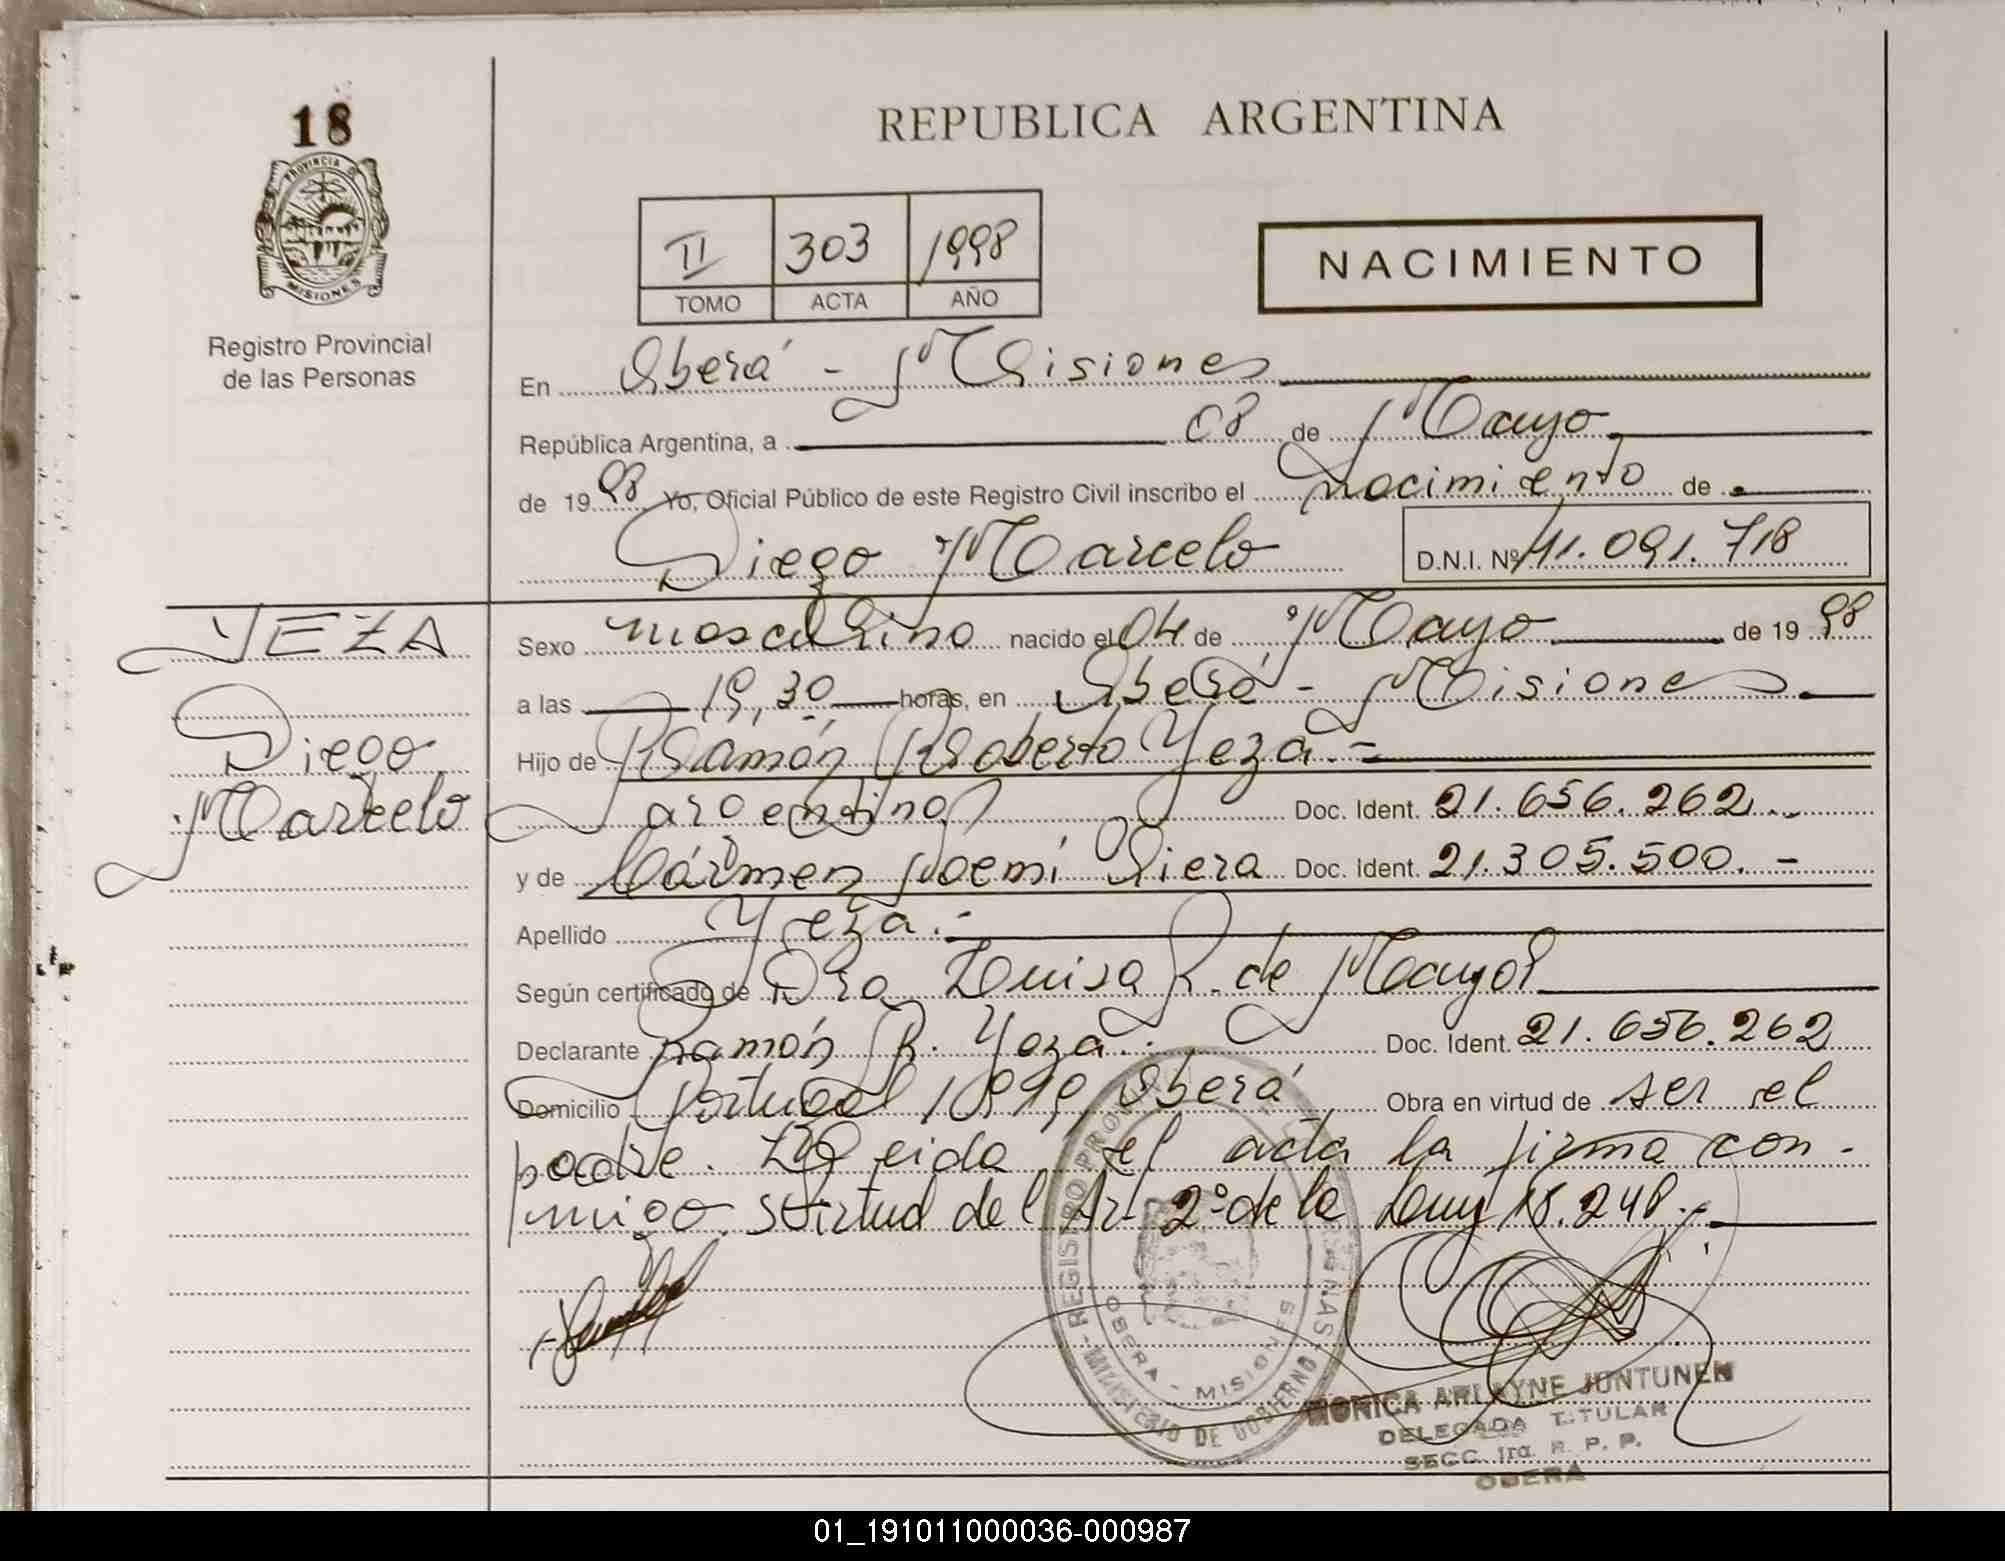 18
PROVINCIA
MISIONES
Registro Provincial
de las Personas
REPUBLICA ARGENTINA
II 303 1998
TOMO ACTA AÑO
NACIMIENTO
En Oberá - Misiones
República Argentina, a 08 de Mayo
de 1998 Yo, Oficial Público de este Registro Civil inscribo el nacimiento de
Diego Marcelo D.N.I. Nº 41.091.718
YEZA
Diego
Marcelo
Sexo masculino nacido el 04 de Mayo de 1998
a las 19,30 horas, en Oberá - Misiones
Hijo de Ramón Roberto Yeza.-
argentino Doc. Ident. 21.656.262.-
y de Cármen Noemí Viera Doc. Ident. 21.305.500.-
Apellido Yeza.-
Según certificado de Dra Luisa R. de Mayol
Declarante Ramón R. Yeza.. Doc. Ident. 21.656.262
Domicilio Portugal 1919, Oberá Obra en virtud de ser el
padre. Leida el acta la firma con-
migo. Virtud del Art 2º de la Ley 18.248.-
REGISTRO PROV
OBERA - MISIONES
MINISTERIO DE GOBIERNO
MONICA ARLAYNE JUNTUNEN
DELEGADA TITULAR
SECC. 1ra. R. P. P.
OBERA
01_191011000036-000987